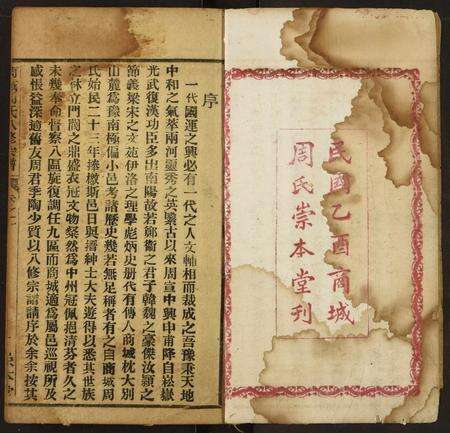 民國乙酉商城
周氏崇本堂刊
序
一代國運之興必有一代之人文軸相而裁成之吾豫秉天地
中和之氣萃兩河靈秀之英曩古以來周宣中興申甫降自崧嶽
光武復漢功臣多出南陽故若鄭衛之君子韓魏之豪傑汝潁之
節義梁宋之文苑伊洛之理學彪炳史册代有傳人商城枕大別
山麓為豫南極偏小邑考諸歷史幾若無足稱者有之自商城周
氏始民二十三年捧檄斯邑日與搢紳士大夫遊得以悉其世族
之林立門閥之鼎盛衣冠文物粲然為中州冠佩挹清芬者久之
未幾奉命督察八區旋復調任九區而商城適為屬邑巡視所及
感悵益深適舊友周君季陶少質以八修宗譜請序於余余按其